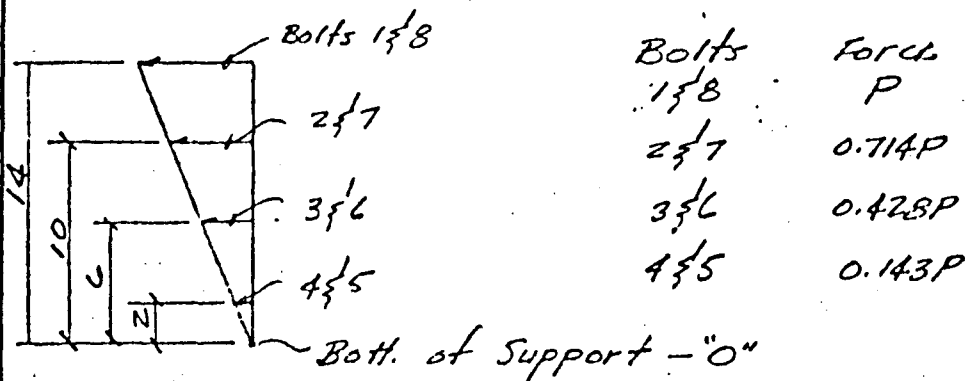 Bolts 1&8
2&7
3&6
4&5
14
10
6
2
Bott. of Support - "O"
Bolts Force
1&8 P
2&7 0.714P
3&6 0.428P
4&5 0.143P